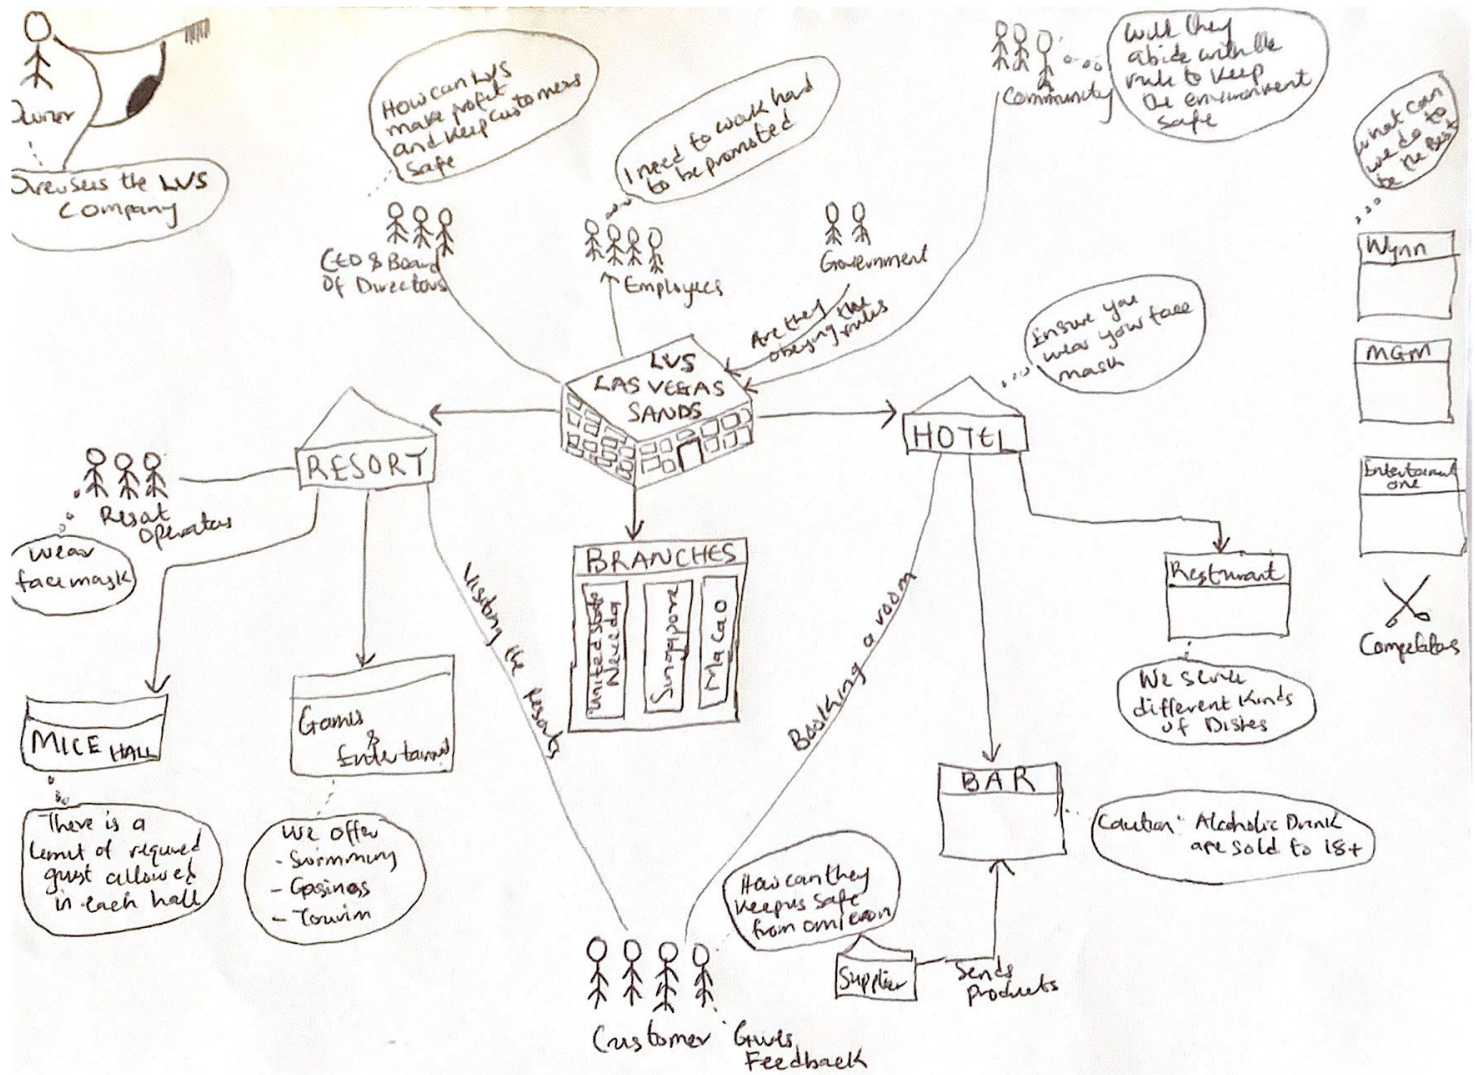 Owner
Oversees the LVS
Company
How can LVS
make profit
and keep customers
safe
CEO & Board
Of Directors
I need to work hard
to be promoted
Employees
Government
Are they the
obeying rules
Community
Will they
abide with the
rule to keep
the environment
safe
What can
we do to
be the Best
Wynn
MGM
Entertainment
one
Competitors
LVS
LAS VEGAS
SANDS
RESORT
Resort
Operators
Wear
face mask
HOTEL
Ensure you
wear your face
mask
BRANCHES
United States
Singapore
Macao
Visiting the Resorts
Booking a room
Resturant
We serve
different kinds
of Dishes
MICE HALL
There is a
limit of required
guest allowed
in each hall
Games
&
Entertainment
We offer
- Swimming
- Casinos
- Tourism
BAR
Caution: Alcoholic Drink
are sold to 18+
How can they
keep us safe
from omicron
Supplier
Sends
Products
Customer
Gives
Feedback